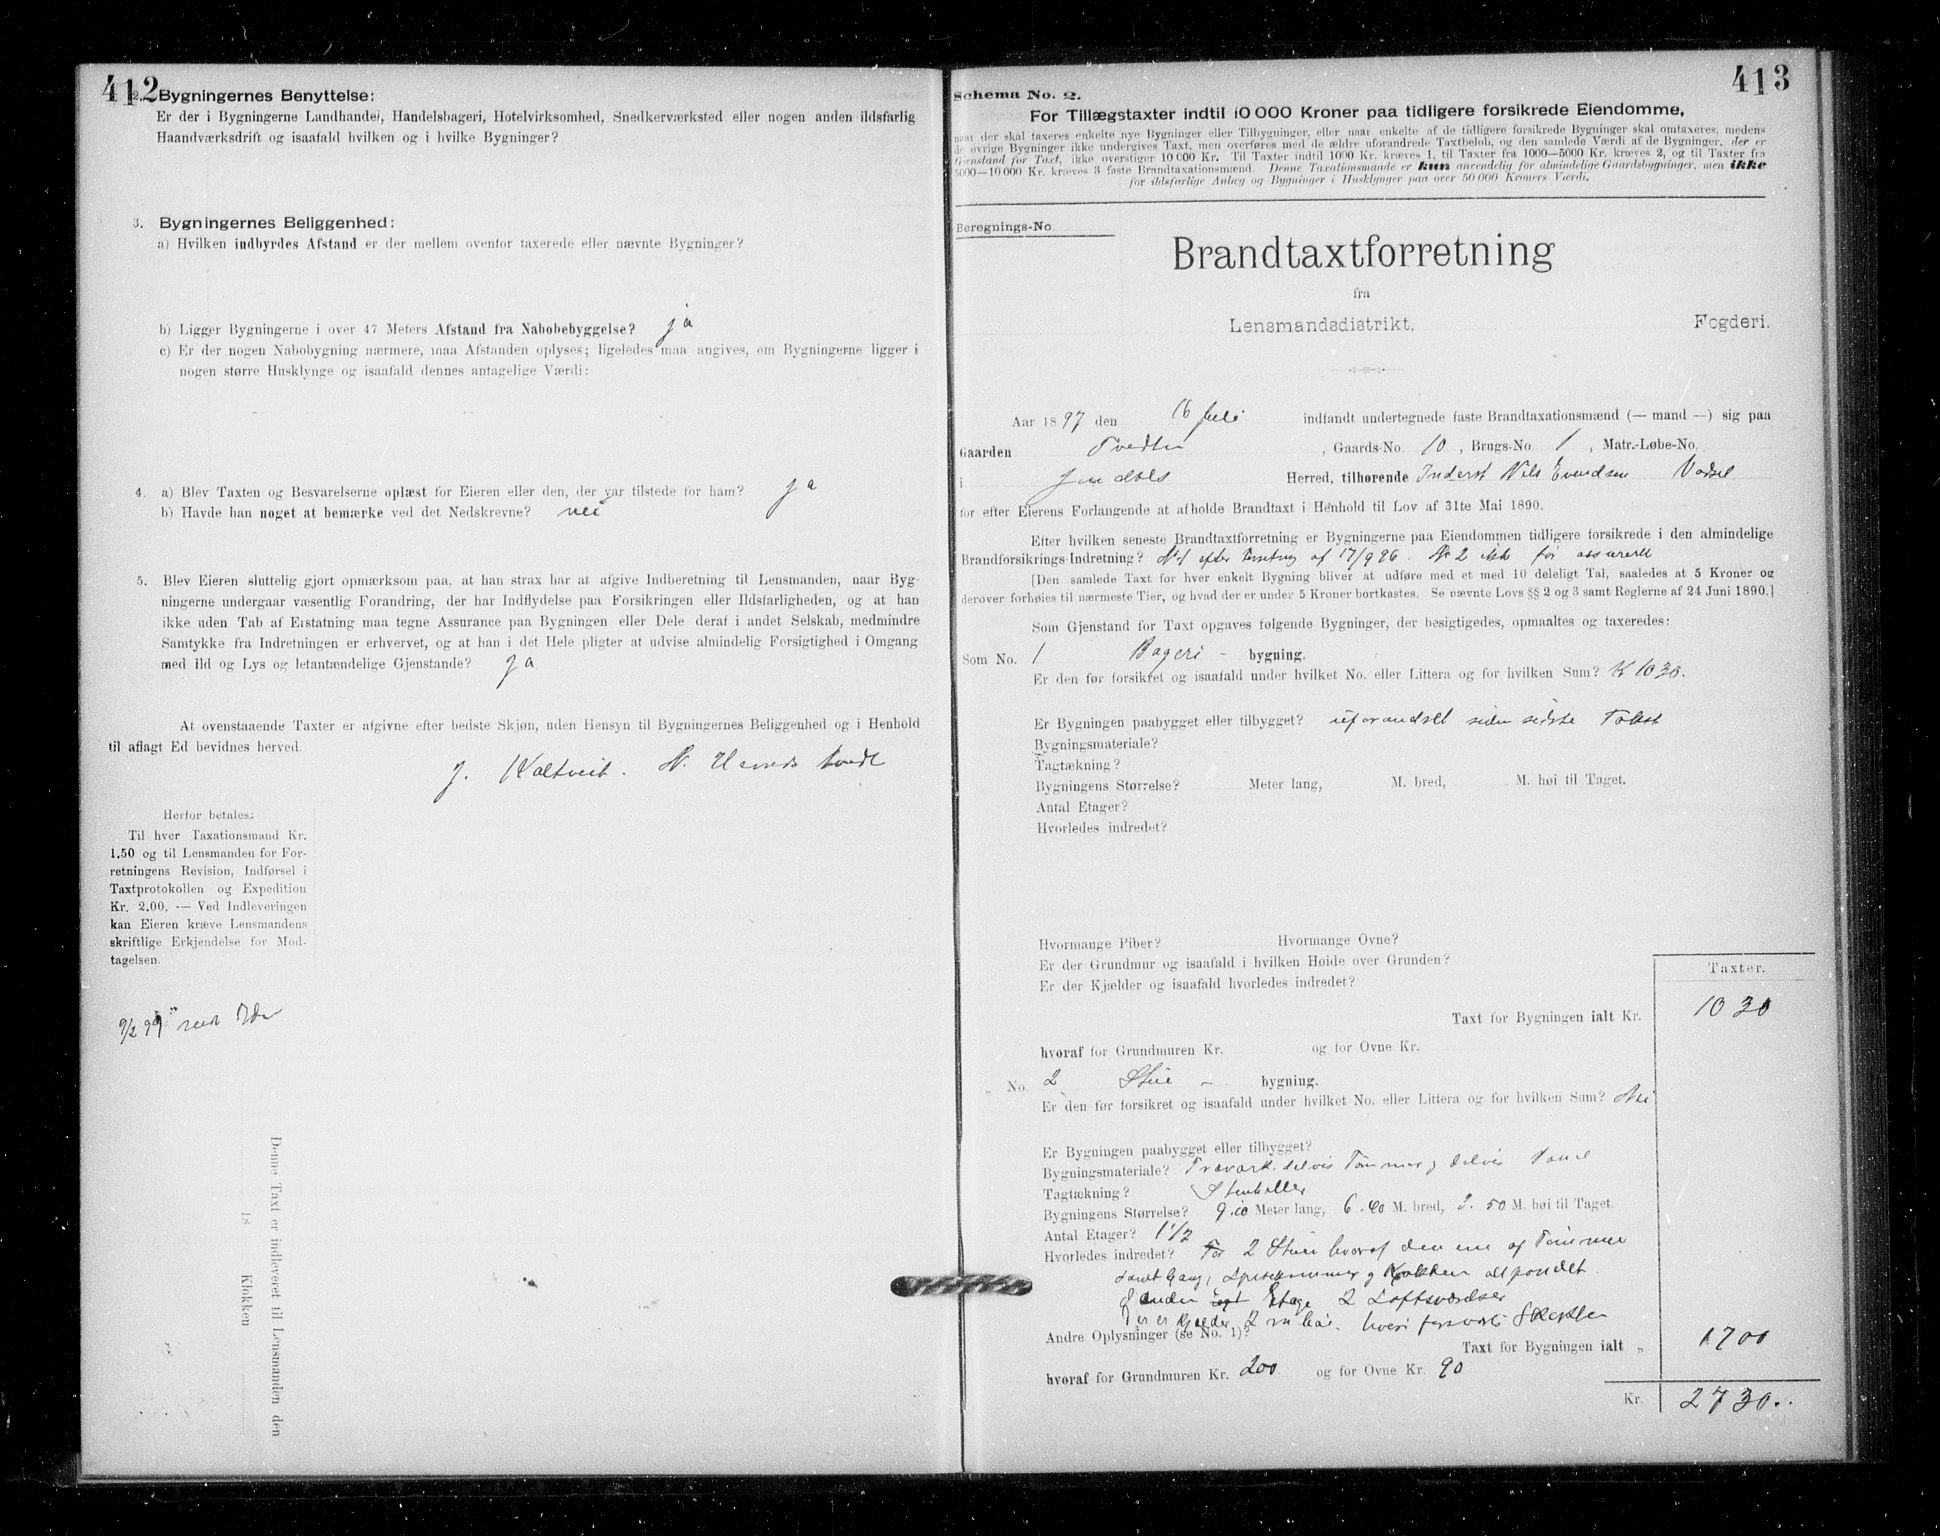 412
2. Bygningernes Benyttelse:
Er der i Bygningerne Landhandel, Handelsbageri, Hotelvirksomhed, Snedkerværksted eller nogen anden ildsfarlig
Haandværksdrift og isaafald hvilken og i hvilke Bygninger?
3. Bygningernes Beliggenhed:
a) Hvilken indbyrdes Afstand er der mellem ovenfor taxerede eller nævnte Bygninger?
b) Ligger Bygningerne i over 47 Meters Afstand fra Nabobebyggelse? ja
c) Er der nogen Nabobygning nærmere, maa Afstanden oplyses; ligeledes maa angives, om Bygningerne ligger i
nogen større Husklynge og isaafald dennes antagelige Værdi:
4. a) Blev Taxten og Besvarelserne oplæst for Eieren eller den, der var tilstede for ham? ja
b) Havde han noget at bemærke ved det Nedskrevne? nei
5. Blev Eieren sluttelig gjort opmærksom paa, at han strax har at afgive Indberetning til Lensmanden, naar Byg-
ningerne undergaar væsentlig Forandring, der har Indflydelse paa Forsikringen eller Ildsfarligheden, og at han
ikke uden Tab af Erstatning maa tegne Assurance paa Bygningen eller Dele deraf i andet Selskab, medmindre
Samtykke fra Indretningen er erhvervet, og at han i det Hele pligter at udvise almindelig Forsigtighed i Omgang
med ild og Lys og letantændelige Gjenstande? ja
At ovenstaaende Taxter er afgivne efter bedste Skjøn, uden Hensyn til Bygningernes Beliggenhed og i Henhold
til aflagt Ed bevidnes herved.
J. Kaltveit. N.
Herfor betales:
Til hver Taxationsmand Kr.
1.50 og til Lensmanden for For-
retningens Revision, Indførsel i
Taxtprotokollen og Expedition
Kr. 2.00. — Ved Indleveringen
kan Eieren kræve Lensmandens
skriftlige Erkjendelse for Mod-
tagelsen.
9/2 99
Denne Taxt er indleveret til Lensmanden den
18 Klokken
413
Schema No. 2.
For Tillægstaxter indtil 10 000 Kroner paa tidligere forsikrede Eiendomme,
naar der skal taxeres enkelte nye Bygninger eller Tilbygninger, eller naar enkelte af de tidligere forsikrede Bygninger skal omtaxeres, medens
de øvrige Bygninger ikke undergives Taxt, men overføres med de ældre uforandrede Taxtbeløb, og den samlede Værdi af de Bygninger, der er
Gjenstand for Taxt, ikke overstiger 10 000 Kr. Til Taxter indtil 1000 Kr. kræves 1, til Taxter fra 1000—5000 Kr. kræves 2, og til Taxter fra
5000—10 000 Kr. kræves 3 faste Brandtaxationsmænd. Denne Taxationsmaade er kun anvendelig for almindelige Gaardsbygninger, men ikke
for ildsfarlige Anlæg og Bygninger i Husklynger paa over 50 000 Kroners Værdi.
Beregnings-No.
Brandtaxtforretning
fra
Lensmandsdistrikt, Fogderi.
Aar 1897 den 16 Juli indfandt undertegnede faste Brandtaxationsmænd (— mand —) sig paa
Gaarden , Gaards-No. 10, Brugs-No 1, Matr.-Løbe-No.
i Herred, tilhørende Inderst Nils
for efter Eierens Forlangende at afholde Brandtaxt i Henhold til Lov af 31te Mai 1890.
Efter hvilken seneste Brandtaxtforretning er Bygningerne paa Eiendommen tidligere forsikrede i den almindelige
Brandforsikrings-Indretning? No 1 efter af 17/9 96. No 2 ikke før assureret
[Den samlede Taxt for hver enkelt Bygning bliver at udføre med et med 10 deleligt Tal, saaledes at 5 Kroner og
derover forhøies til nærmeste Tier, og hvad der er under 5 Kroner bortkastes. Se nævnte Lovs §§ 2 og 3 samt Reglerne af 24 Juni 1890.]
Som Gjenstand for Taxt opgaves følgende Bygninger, der besigtigedes, opmaaltes og taxeredes:
Som No. 1 Bageri - bygning.
Er den før forsikret og isaafald under hvilket No. eller Littera og for hvilken Sum? K 1030.
Er Bygningen paabygget eller tilbygget? uforandret siden sidste Takst
Bygningsmateriale?
Tagtækning?
Bygningens Størrelse? Meter lang, M. bred, M. høi til Taget.
Antal Etager?
Hvorledes indredet?
Hvormange Piber? Hvormange Ovne?
Er der Grundmur og isaafald i hvilken Høide over Grunden?
Er der Kjælder og isaafald hvorledes indredet?
Taxter.
Taxt for Bygningen ialt Kr. 1030
hvoraf for Grundmuren Kr. og for Ovne Kr.
„ No. 2 Stue - bygning.
Er den før forsikret og isaafald under hvilket No. eller Littera og for hvilken Sum? Nei
Er Bygningen paabygget eller tilbygget?
Bygningsmateriale? Træværk delvis Tømmer, delvis
Tagtækning? Stenheller
Bygningens Størrelse? 9.10 Meter lang, 6.40 M. bred, 2.50 M. høi til Taget.
Antal Etager? 1 1/2
Hvorledes indredet? 2 Stuer hvoraf den ene af Tømmer
samt Gang, Spisekammer og Kokken alt panelet.
I anden Etage 2 Loftsværelser
Der er Kjælder
Andre Oplysninger (se No. 1)?
Taxt for Bygningen ialt „ 1700
hvoraf for Grundmuren Kr. 200 og for Ovne Kr. 90
Kr. 2730..